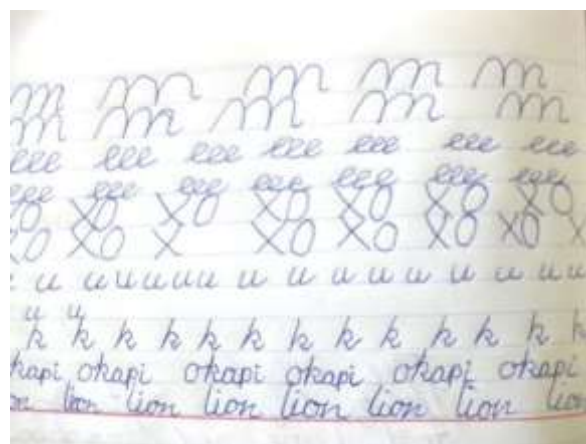 m m m m m
m m m m m
eee eee eee eee eee eee eee
eee eee eee eee eee eee eee
XO XO XO XO XO XO XO
XO XO X XO XO XO XO X
u u u u u u u u u u u u u u u
u u
k k k k k k k k k k k k k
okapi okapi okapi okapi okapi okapi
lion lion lion lion lion lion lion lion